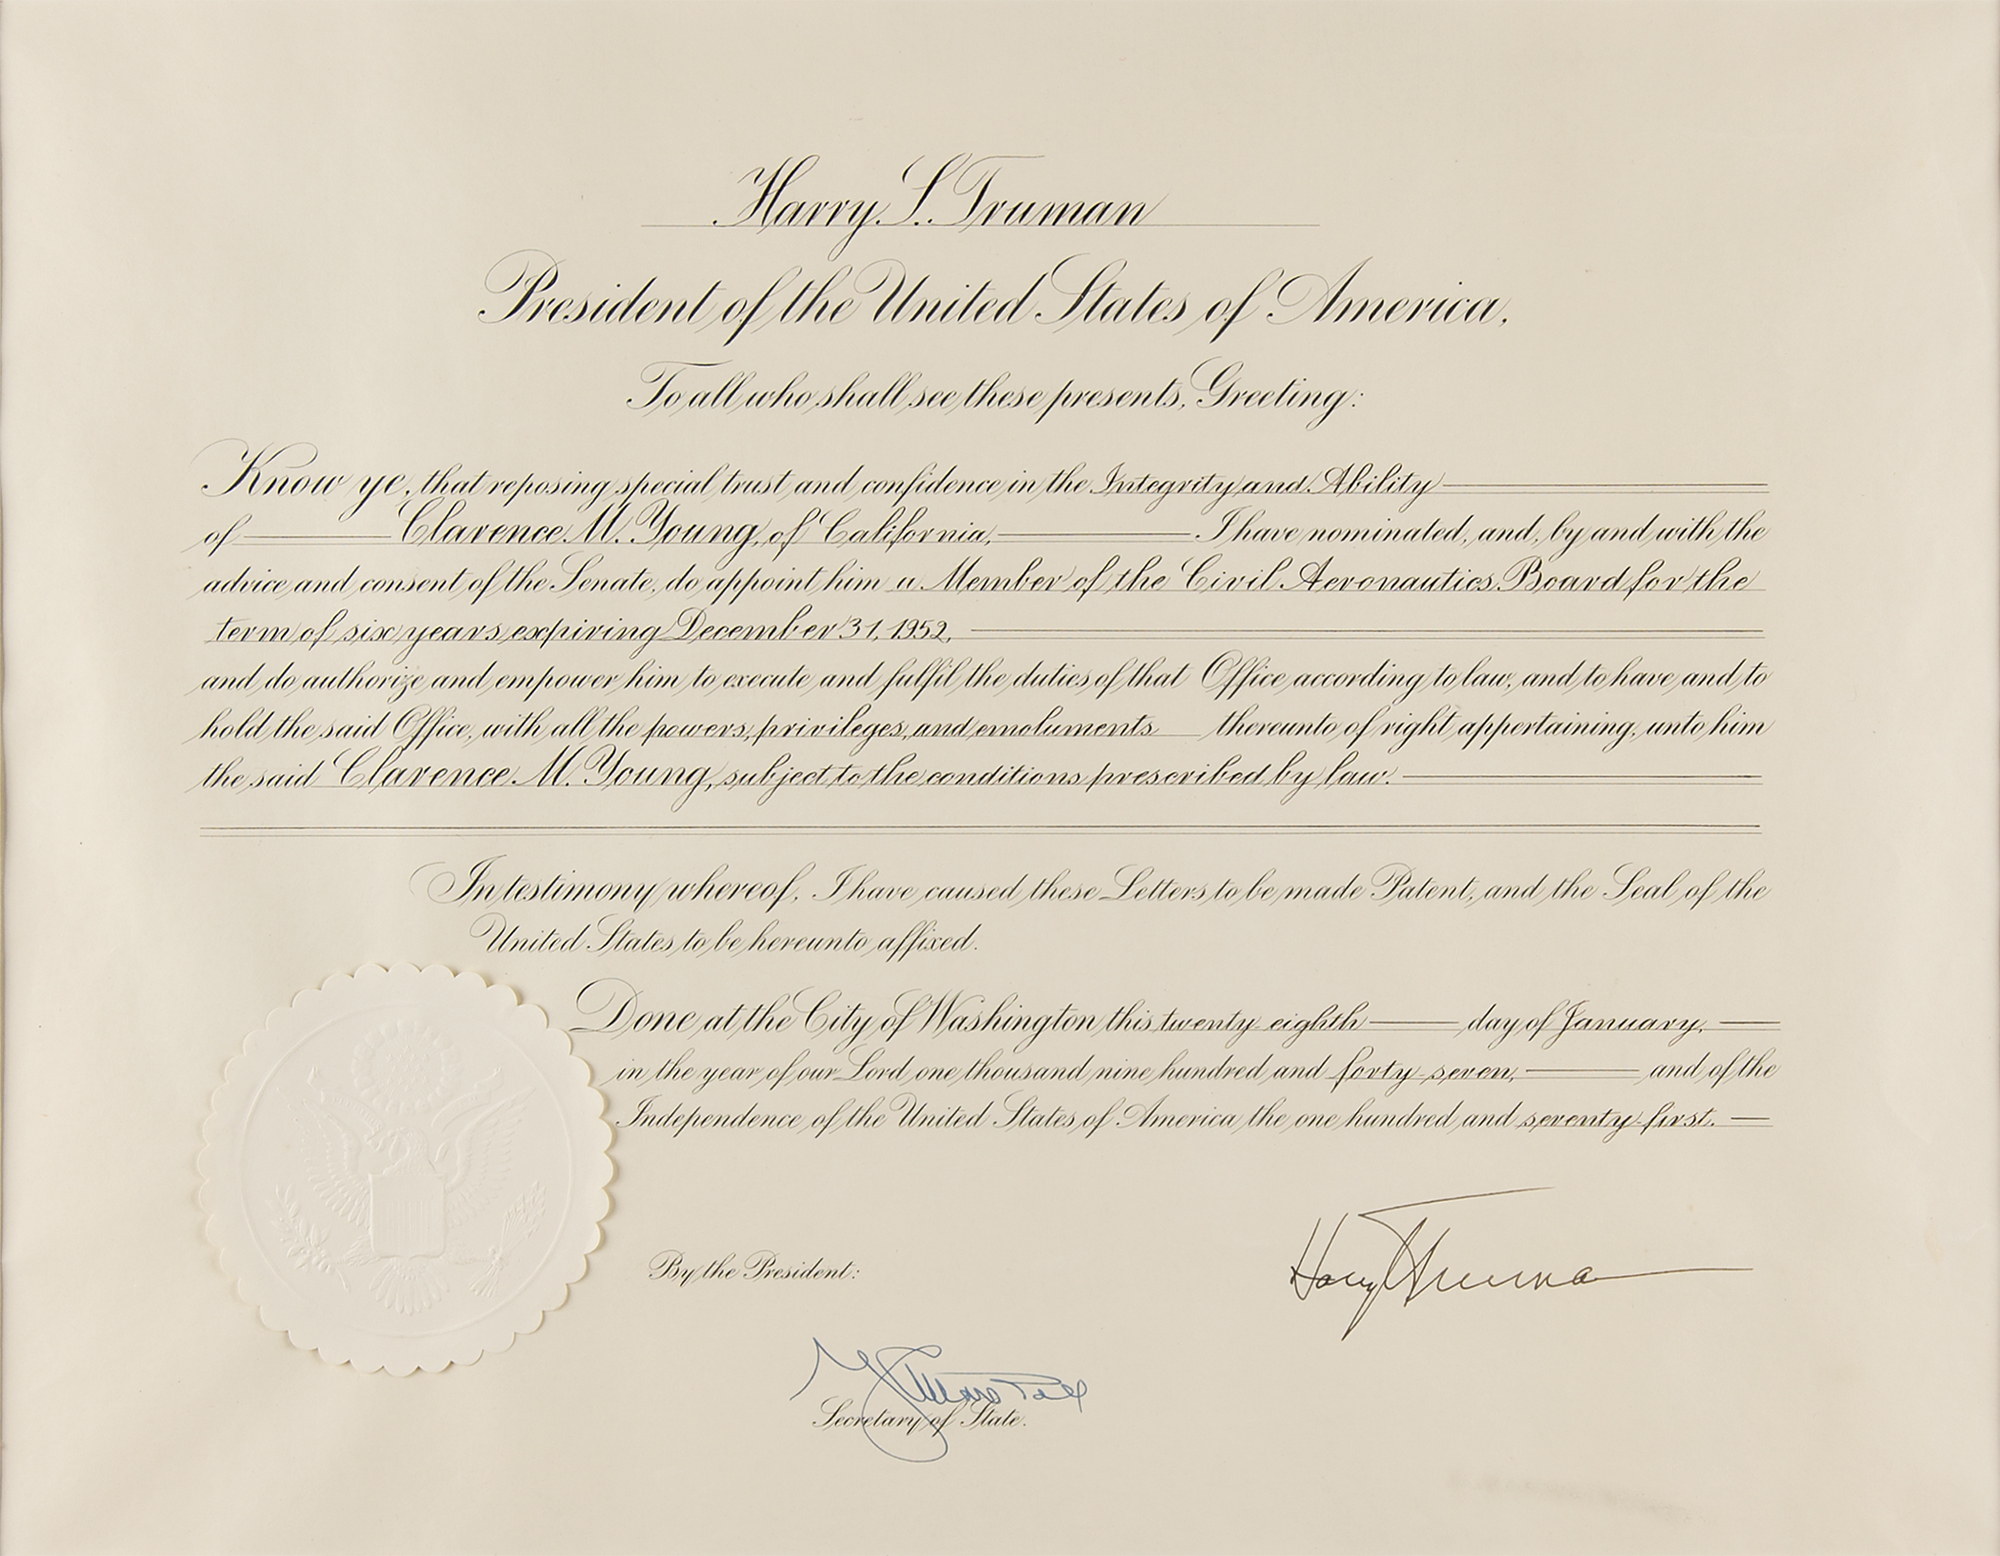 Harry S. Truman
President of the United States of America,
To all who shall see these presents, Greeting:
Know ye, that reposing special trust and confidence in the Integrity and Ability
of Clarence M. Young, of California, I have nominated, and, by and with the
advice and consent of the Senate, do appoint him a Member of the Civil Aeronautics Board for the
term of six years expiring December 31, 1952,
and do authorize and empower him to execute and fulfil the duties of that Office according to law, and to have and to
hold the said Office, with all the powers, privileges, and emoluments thereunto of right appertaining, unto him
the said Clarence M. Young, subject to the conditions prescribed by law.
In testimony whereof, I have caused these Letters to be made Patent, and the Seal of the
United States to be hereunto affixed.
Done at the City of Washington this twenty-eighth day of January,
in the year of our Lord one thousand nine hundred and forty-seven, and of the
Independence of the United States of America the one hundred and seventy-first.
Harry S Truman
By the President:
G. C. Marshall
Secretary of State.